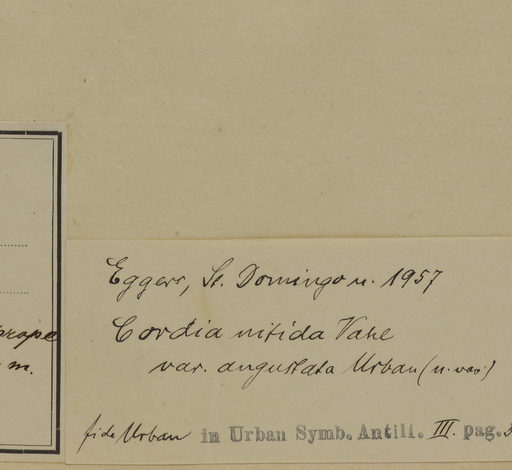 prope
m.
Eggers, St. Domingo n. 1957
Cordia nitida Vahl
var. angustata Urban (n. var.)
fide Urban in Urban Symb. Antill. III. pag. 3